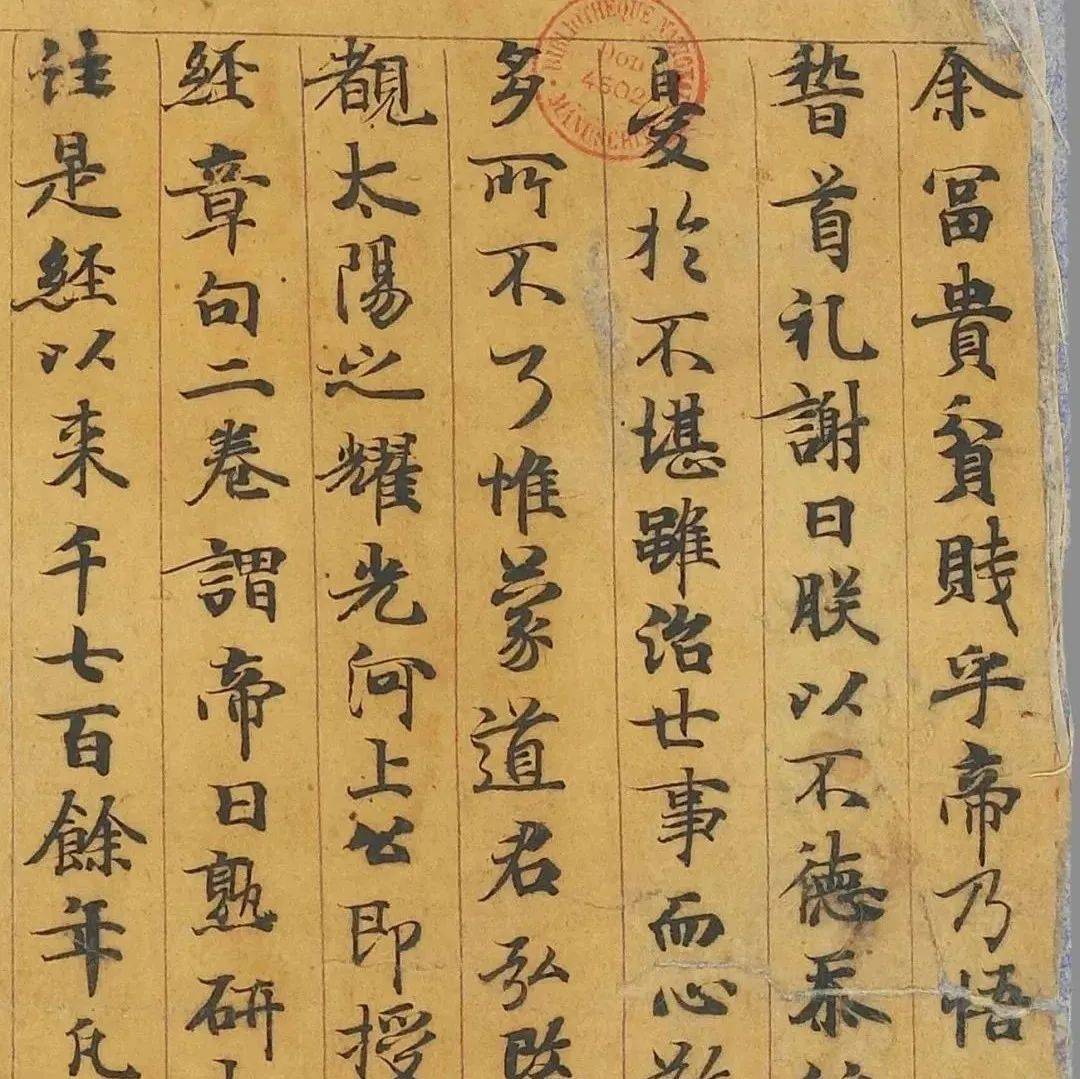 余冨貴貧賤乎帝乃悟
稽首礼謝曰朕以不德忝
憂於不堪雖治世事而心
多所不了惟蒙道君弘
覩太陽之耀光河上公即授
経章句二卷謂帝曰熟研
註是経以来千七百餘年凡
BIBLIOTHÈQUE
Don
4502